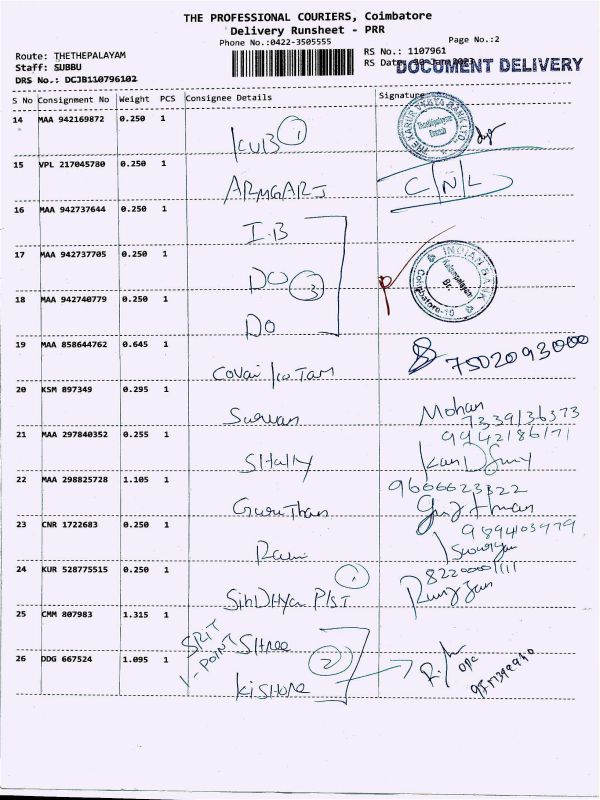 THE PROFESSIONAL COURIERS, Coimbatore
Delivery Runsheet - PRR
Phone No.:0422-3505555
Page No.:2
Route: THETHEPALAYAM
RS No.: 1107961
Staff: SUBBU
RS Date:
DOCUMENT DELIVERY
DRS No.: DCJB110796102
S No Consignment No Weight PCS Consignee Details Signature
14 MAA 942169872 0.250 1 KVB 1
THE KARUR VYSYA BANK LTD.
15 VPL 217045780 0.250 1 ARMGARJ C/N/L
16 MAA 942737644 0.250 1 I.B
17 MAA 942737705 0.250 1 DO 3
INDIAN BANK
Br.
Coimbatore-10
18 MAA 942740779 0.250 1 DO
19 MAA 858644762 0.645 1 Covai 7502093000
20 KSM 897349 0.295 1 Mohan
7339136373
21 MAA 297840352 0.255 1 9942186171
22 MAA 298825728 1.105 1 Guruthan 9666623322
23 CNR 1722683 0.250 1 9894103979
24 KUR 528775515 0.250 1 SihDHyan P/ST 1 8220001111
25 CMM 807983 1.315 1 Shree
26 DDG 667524 1.095 1 2
Kishore